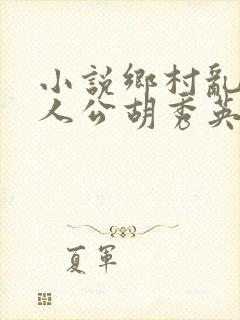 小說鄉村亂
人公胡秀英
夏軍